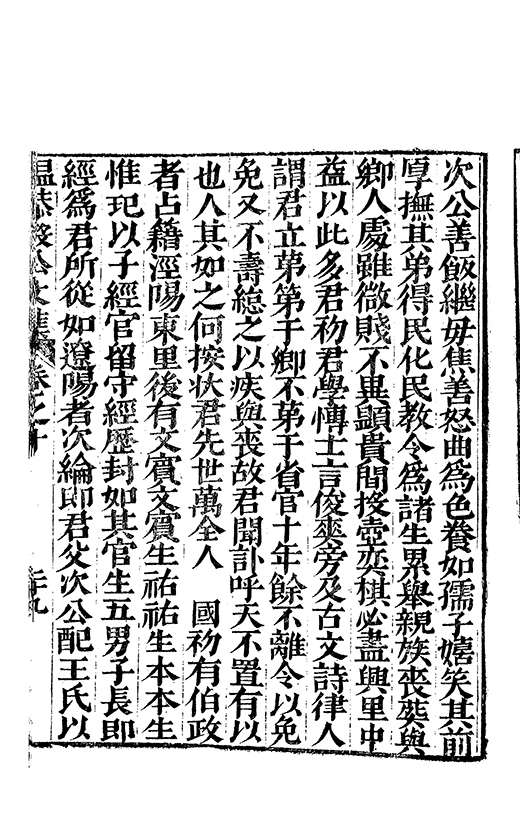 次公善飯繼毋焦善怒曲為色養如孺子嬉笑其前
厚撫其弟得民化民教令為諸生累舉親族喪葬與
鄉人處雖微賤不異顯貴間投壺奕棋必盡興里中
益以此多君初君學愽士言俊爽旁及古文詩律人
謂君立苐第于鄉不苐于省官十年餘不離令以免
免又不壽緫之以疾與喪故君聞訃呼天不置有以
也人其如之何按狀君先世萬全人　國初有伯政
者占籍涇陽東里後有文賔文賔生祐祐生本本生
惟玘以子經官留守經歷封如其官生五男子長即
經為君所從如遼陽者次綸即君父次公配王氏以
温恭毅公文集　卷之十　二九